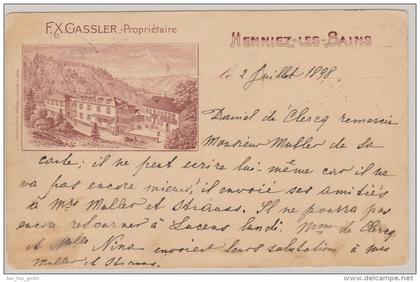 F.X. GASSLER,-Propriétaire
HENNIEZ-LES-BAINS
le 2 Juillet 1898.
Daniel de Clercq remercie
Monsieur Muller de sa
carte; il ne peut écrire lui-même car il ne
va pas encore mieux; il envoie ses amitiés
à Mrs Muller et Strauss. Il ne pourra pas
encore retourner à Lucens lundi. Mme de Clercq
et Mlle Nina envoient leurs salutations à Mrs
Muller et Strauss.
www.delcampe.net